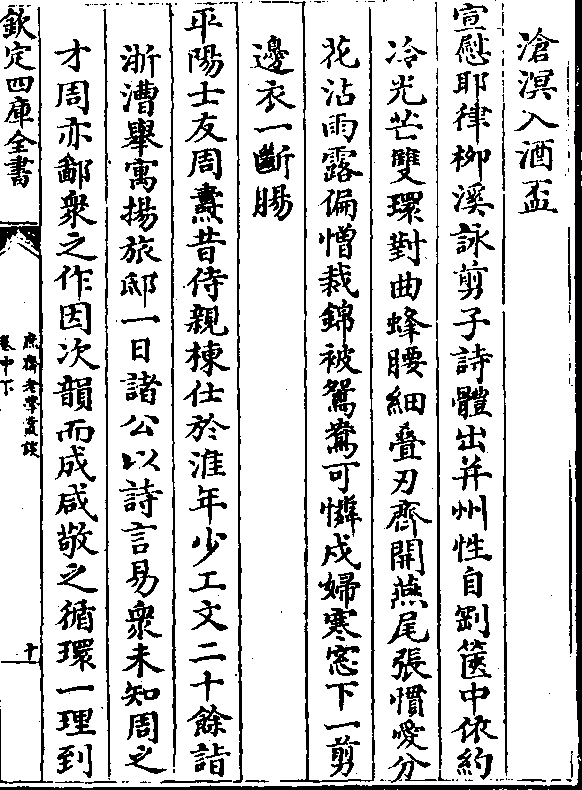 滄溟入酒盃
宣慰耶律栁溪詠剪子詩體出并州性自剛篋中依約
冷光芒雙環對曲蜂腰細叠刃齊開燕尾張慣愛分
花沾雨露偏憎裁錦被鴛鴦可憐戍婦寒窓下一剪
邊衣一斷腸
平陽士友周燾昔侍親棟仕於淮年少工文二十餘詣
浙漕舉寓揚旅邸一日諸公以詩言易衆未知周之
才周亦鄙衆之作因次韻而成咸敬之循環一理到
欽定四庫全書
庶齋老學叢談
卷中下
十